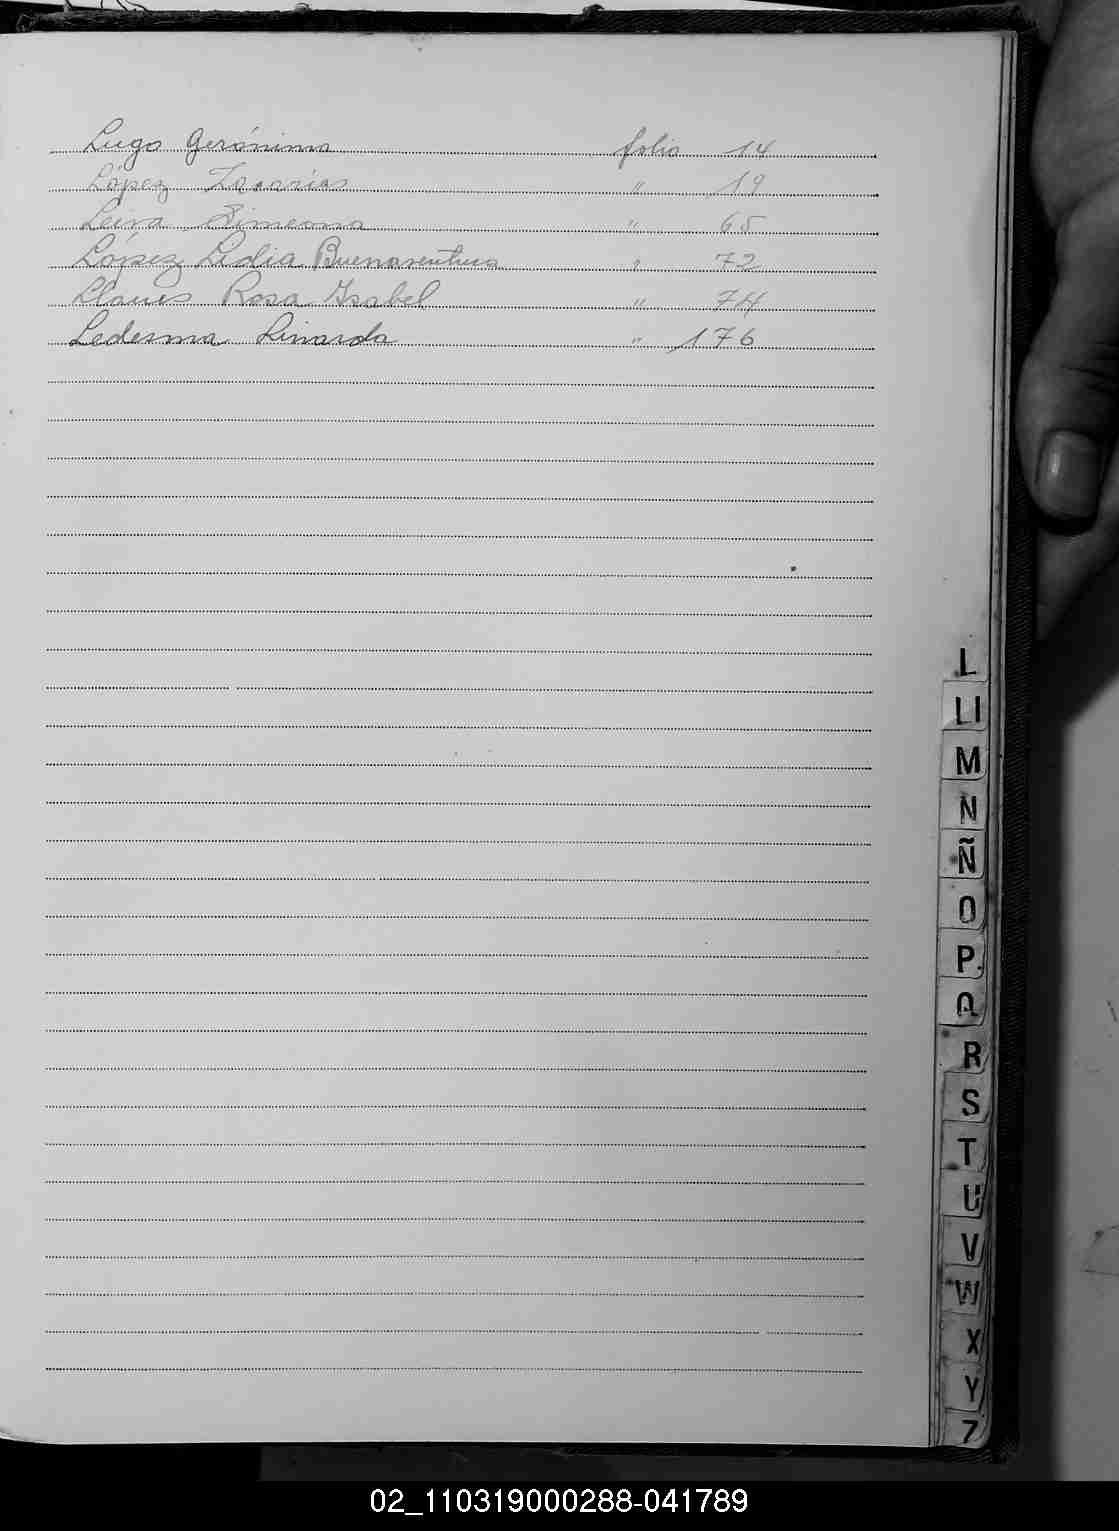 Lugo Gerónima folio 14
López Zacarías " 19
Leiva Simeona " 65
López Lidia Buenaventura " 72
Llanes Rosa Isabel " 74
Ledesma Linarda " 176
L
Ll
M
N
Ñ
O
P
Q
R
S
T
U
V
W
X
Y
Z
02_110319000288-041789